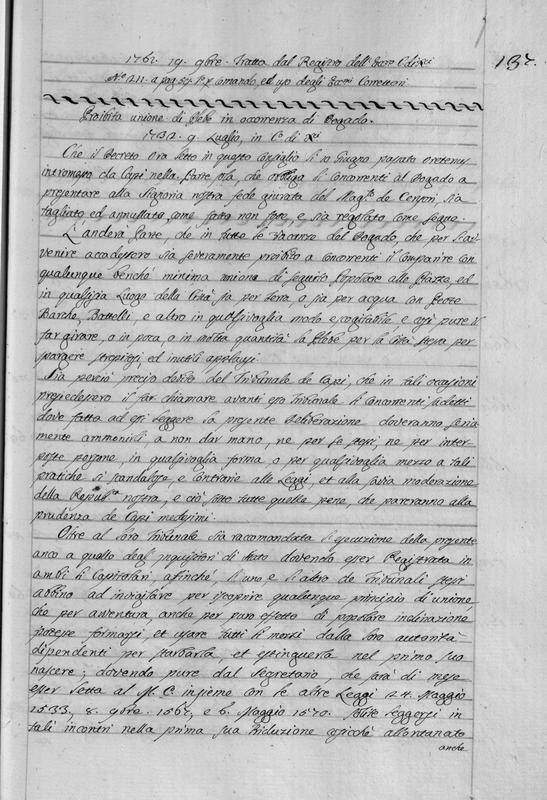 137.
1761. 19. 9bre. Tratta dal Registro dell' Eccmo C. di Xci
No. 211. a pag. 57. Per comando, ed uso degli Eccmi Correttori
Proibita unione di Plebe in occorrenza di Dogado.
1732. 9. Luglio, in C.o di Xci
Che il Decreto ora letto in questo Consiglio di 10 Giugno passato
intromesso da Capi nella Parte sta, che obbliga li Concorrenti al Dogado a
presentare alla Signoria nostra fede giurata del Magto. de Censori, sia
tagliato ed annullato come fatto non fosse, e sia regolato come segue.
L'anderà Parte, che in tutte le vacanze del Dogado, che per l'av-
venire accadessero sia severamente proibito a Concorrenti il Comparire con
qualunque benchè minima unione di seguito Popolare alla Piazza, ed
in qualsisia Luogo della Città, sia per terra, o sia per acqua con
Barche, Battelli, e altro in qualsivoglia modo e cogitabile, e così pure il
far girare, o in poca, o in molta quantità la Plebe per la Città stessa per
spargere strepitosi, ed inutili applausi.
Sia perciò preciso debito del Tribunale de Capi, che in tali occasioni
presiedessero il far chiamare avanti esso Tribunale li Concorrenti sudetti
dove fatta ad essi leggere la presente deliberazione doveranno seria-
mente ammonirli a non dar mano, nè per se stessi, nè per inter-
poste persone, in qualsivoglia forma, o per qualsivoglia mezzo a tali
pratiche si scandalose, e contrarie alle Leggi, et alla savia moderazione
della Repubca nostra, e ciò sotto tutte quelle pene, che pareranno alla
prudenza de Capi medesimi.
Oltre al loro Tribunale sia raccomandata l'esecuzione della presente
anco a quello degl' Inquisitori di Stato dovendo esser Registrata in
ambi li Capitolari, afinchè, l'uno e l'altro de Tribunali stessi
abbino ad invigilare per iscoprire qualunque principio di unione,
che per avventura, anche per puro effetto di popolare inclinazione
potesse formarsi, et usare tutti li mezzi dalla loro autorità
dipendenti per sturbarla, et estinguerla nel primo suo
nascere; dovendo pure dal Segretario, che sarà di mese
esser letta al M. C. insieme con le altre Leggi 24. Maggio
1533, 8. 9bre. 1567, e 6. Maggio 1570. solite leggersi in
tali incontri nella prima sua Riduzione acciochè allontanato
anche